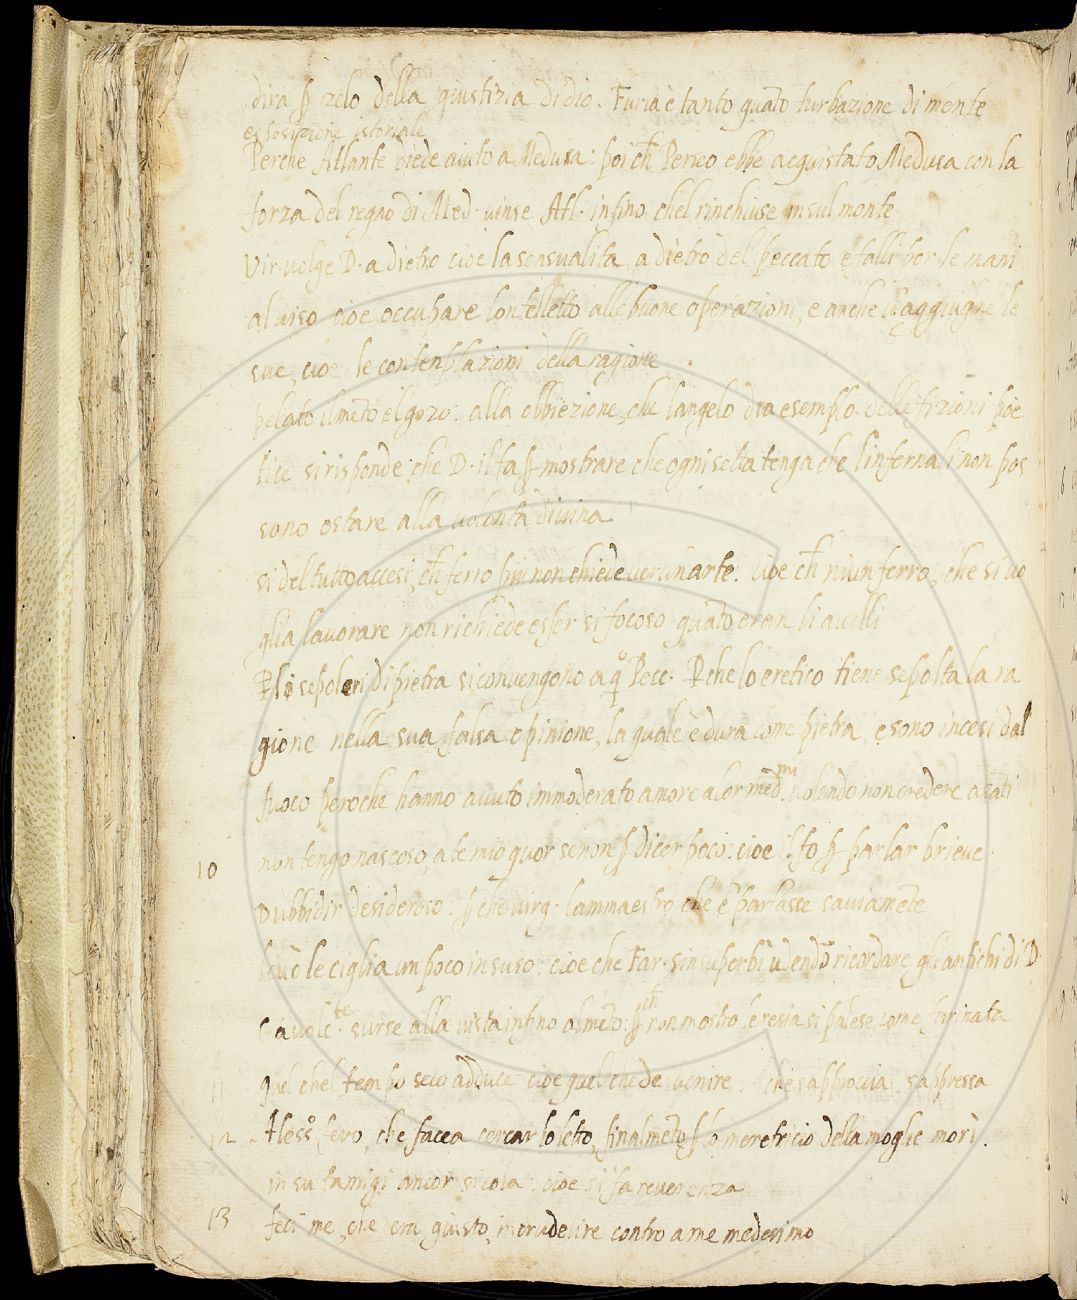 dira ꝑ zelo della giustizia di dio. Furia è tanto quāto turbazione di mēnte
esposizione istoriale
Perche Atlante diede aiuto a Medusa: poi ch̄ Perseo ebbe acquistato Medusa con la
forza del regno di Med. uinse Atl. infino chel rinchiuse in sul monte
Vir. uolge D. a dietro cioe la sensualita a dietro del peccato e falli por le mani
al uiso cioe occupare lontelletto alle buone operazioni, e anche ui aggiugne le
sue, cioe le contenplazioni della ragione
pelato il mēto el gozo: alla obbiezione, che langelo dia esemplo delle fizioni poe
tice si risponde, che D. il fa ꝑ mostrare che ogni setta tenga che linfernali non pos
sono ostare alla uolonta diuina
si del tutto accesi, ch̄ ferro piu non chiede uerun arte. cioe ch̄ niun ferro, che si uo
glia lauorare non richiede esser si focoso quāto eran li auelli
Ꝑ li sepolcri di pietra si conuengono a q̊ Pecc. Ꝑche lo eretico tiene sepolta la ra
gione nella sua falsa opinione, la quale è dura come pietra, e sono incesi dal
fuoco peroche hanno auuto immoderato amore a lor med.mi uolendo non credere a sāti
10 non tengo nascoso, a te mio quor se non ꝑ dicer poco: cioe il fo ꝑ parlar brieue
D ubbidir desideroso: ꝑche uirg. lammaestro che e' parlasse sauiamēte
leuò le ciglia un poco in suso: cioe che Far. sinsuperbì udendo ricordare gli antichi di D.
Caualc.te surse alla uista infino al mēto: ꝑch̄ non mostro leresia si palese come farinata
11 quel chel tempo seco adduce cioe quel che de uenire. che sapproccia sappressa
12 Alesso fero, che facea cercar lo letto, finalmēte ꝑ lo meretricio della moglie morì.
in su tamigi ancor si cola: cioe si fa reuerenza
13 feci me, che era giusto, incrudelire contro a me medesimo